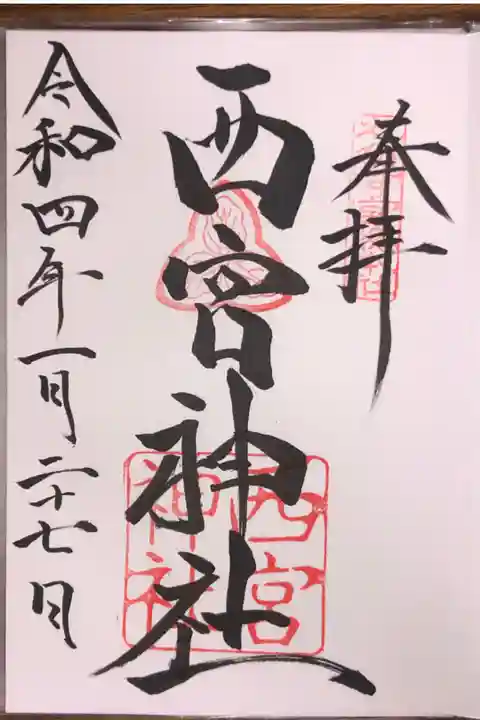 奉拝
西宮神社
西宮
神社
令和四年一月二十七日